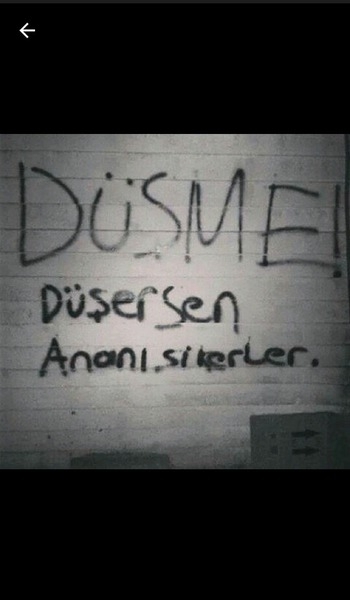 DÜŞME!
Düşersen
Ananı.sikerler.